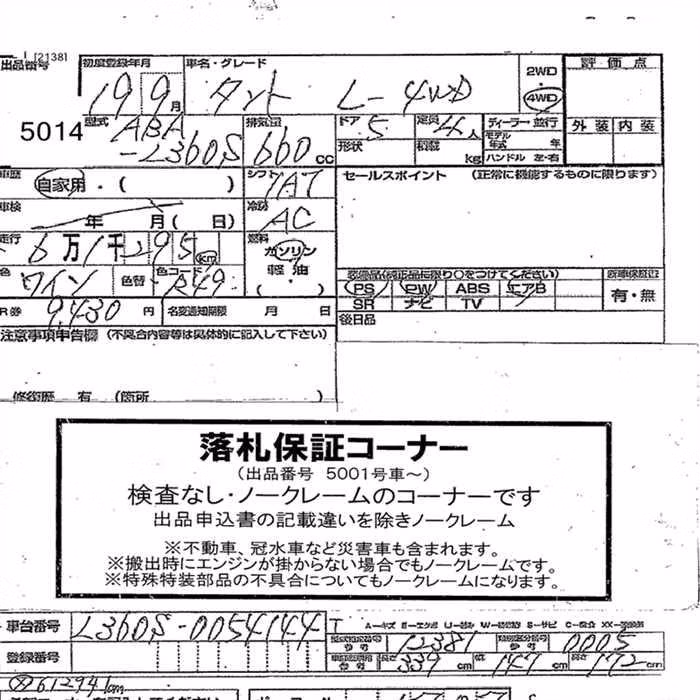 [2138]
出品番号 初度登録年月 車名・グレード 2WD 4WD 評価点
19 9月 タント L-4WD
5014
型式 ABA-L360S 排気量 660cc ドア 5 定員 4人 ディーラー・並行 外装 内装
形状 積載 kg モデル年式 年 ハンドル 左・右
車歴 自家用・( ) シフト IAT セールスポイント (正常に機能するものに限ります)
車検 年 月( 日) 冷房 AC
走行 6万1千295km 燃料 ガソリン 軽油 ( )
色 ワイン 色替 色コード R49
装備品(純正品に限り○をつけてください) 新車保証書
PS PW ABS エアB 有・無
SR ナビ TV
R券 9,430円 名変通知期限 月 日 後日品
注意事項申告欄 (不具合内容等は具体的に記入して下さい)
修復歴 有 (箇所 )
落札保証コーナー
(出品番号 5001号車~)
検査なし・ノークレームのコーナーです
出品申込書の記載違いを除きノークレーム
※不動車、冠水車など災害車も含まれます。
※搬出時にエンジンが掛からない場合でもノークレームです。
※特殊特装部品の不具合についてもノークレームになります。
車台番号 L360S-0054144
A-キズ E-エクボ
参考 12381 類別区分番号 参考 0005
登録番号
参考 339cm 幅 147cm 高さ 172cm
61294km